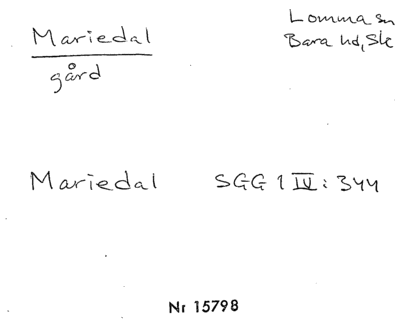 Mariedal
gård
Lomma sn
Bara hd, Sk
Mariedal SGG 1 IV: 344
Nr 15798